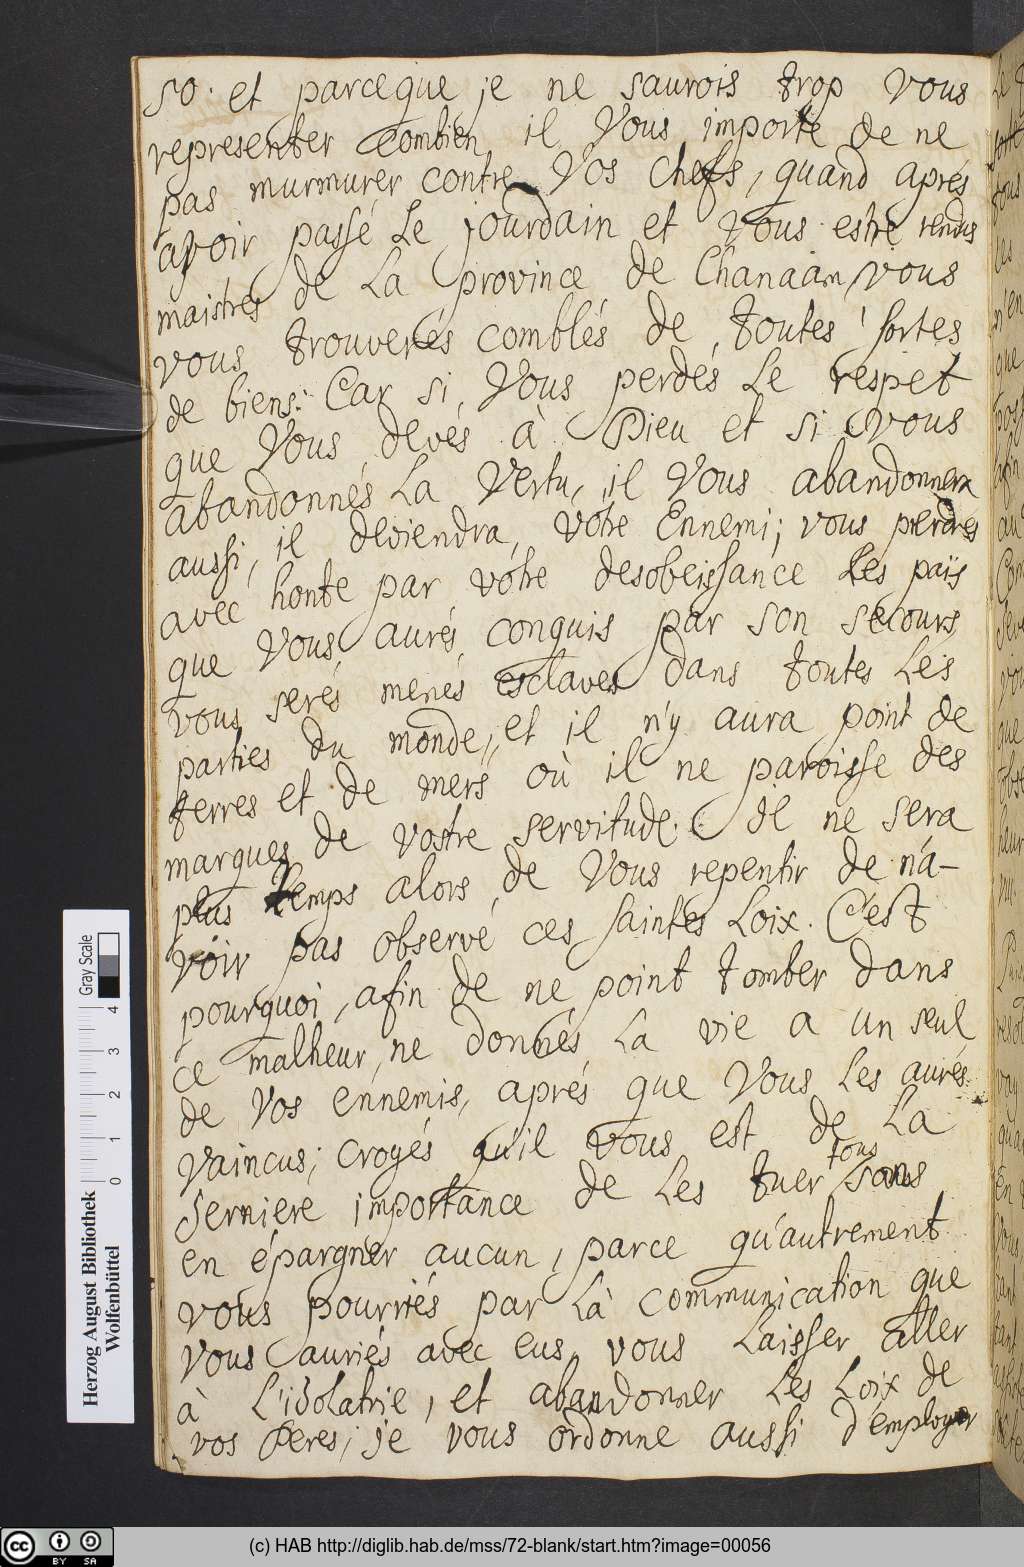 so. et parceque je ne saurois trop vous
representer combien il Vous importe de ne
pas murmurer contre Vos chefs, quand aprés
avoir passé Le jourdain et Vous estre rendus
maistres de La province de Chanaam, vous
vous trouverés comblés de toutes sortes
de biens: Car si Vous perdés Le respet
que Vous devés à Dieu et si vous
abandonnés La Vertu, il Vous abandonnera
aussi, il deviendra, vôtre Ennemi; vous perdres
avec honte par vôtre desobeissance Les païs
que Vous aurés conquis par son secours
vous serés menés esclaves dans toutes Les
parties du monde, et il n'y aura point de
terres et de mers où il ne paroisse des
marques de vostre servitude. il ne sera
plus temps alors, de Vous repentir de n'a-
voir pas observé ces saintes Loix. C'est
pourquoi, afin de ne point tomber dans
ce malheur, ne donnés La vie a un seul
de Vos énnemis, aprés que Vous Les aurés
Vaincus; croyés qu'il vous est de La
derniere importance de Les tuer tous sans
en épargner aucun, parce qu'autrement
vous pourriés par Là communication que
Vous auriés avec eus vous Laisser aller
à L'idolatrie, et abandonner Les Loix de
vos Peres; je vous ordonne aussi d'employer
Gray Scale
0 1 2 3 4
Herzog August Bibliothek
Wolfenbüttel
cc BY SA
(c) HAB http://diglib.hab.de/mss/72-blank/start.htm?image=00056